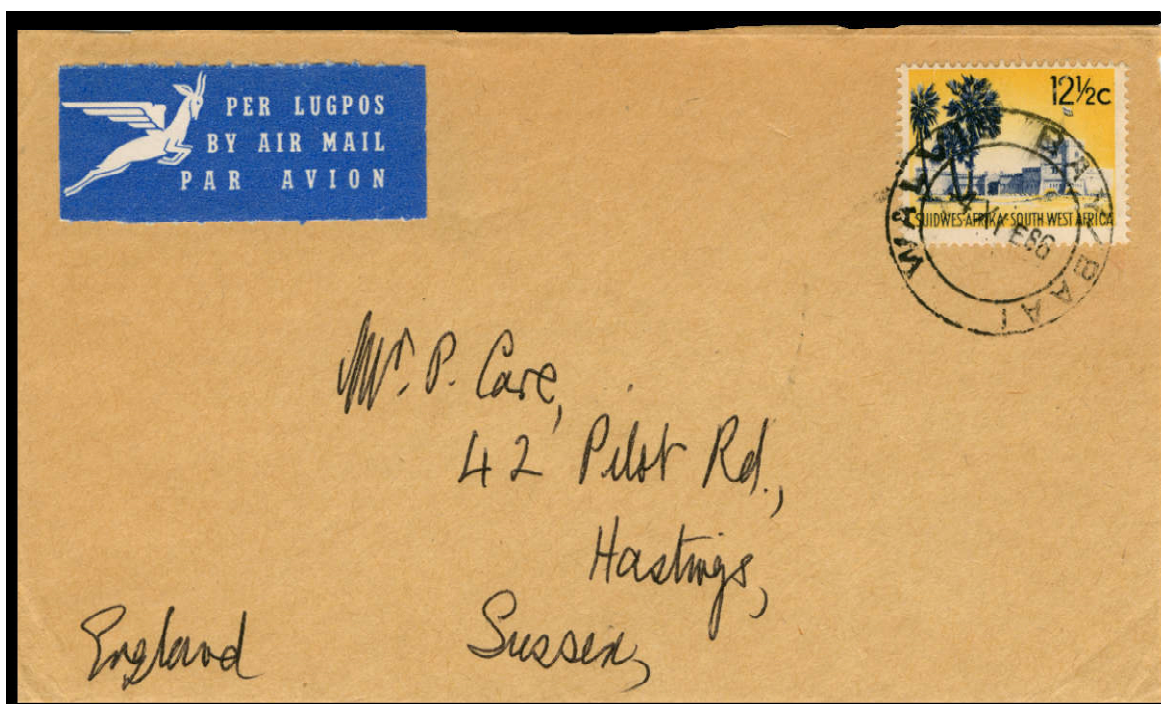 PER LUGPOS
BY AIR MAIL
PAR AVION
12½c
SUIDWES-AFRIKA SOUTH WEST AFRICA
WALVIS BAY/BAAI
Mr. P. Care,
42 Pilot Rd.,
Hastings,
Sussex,
England